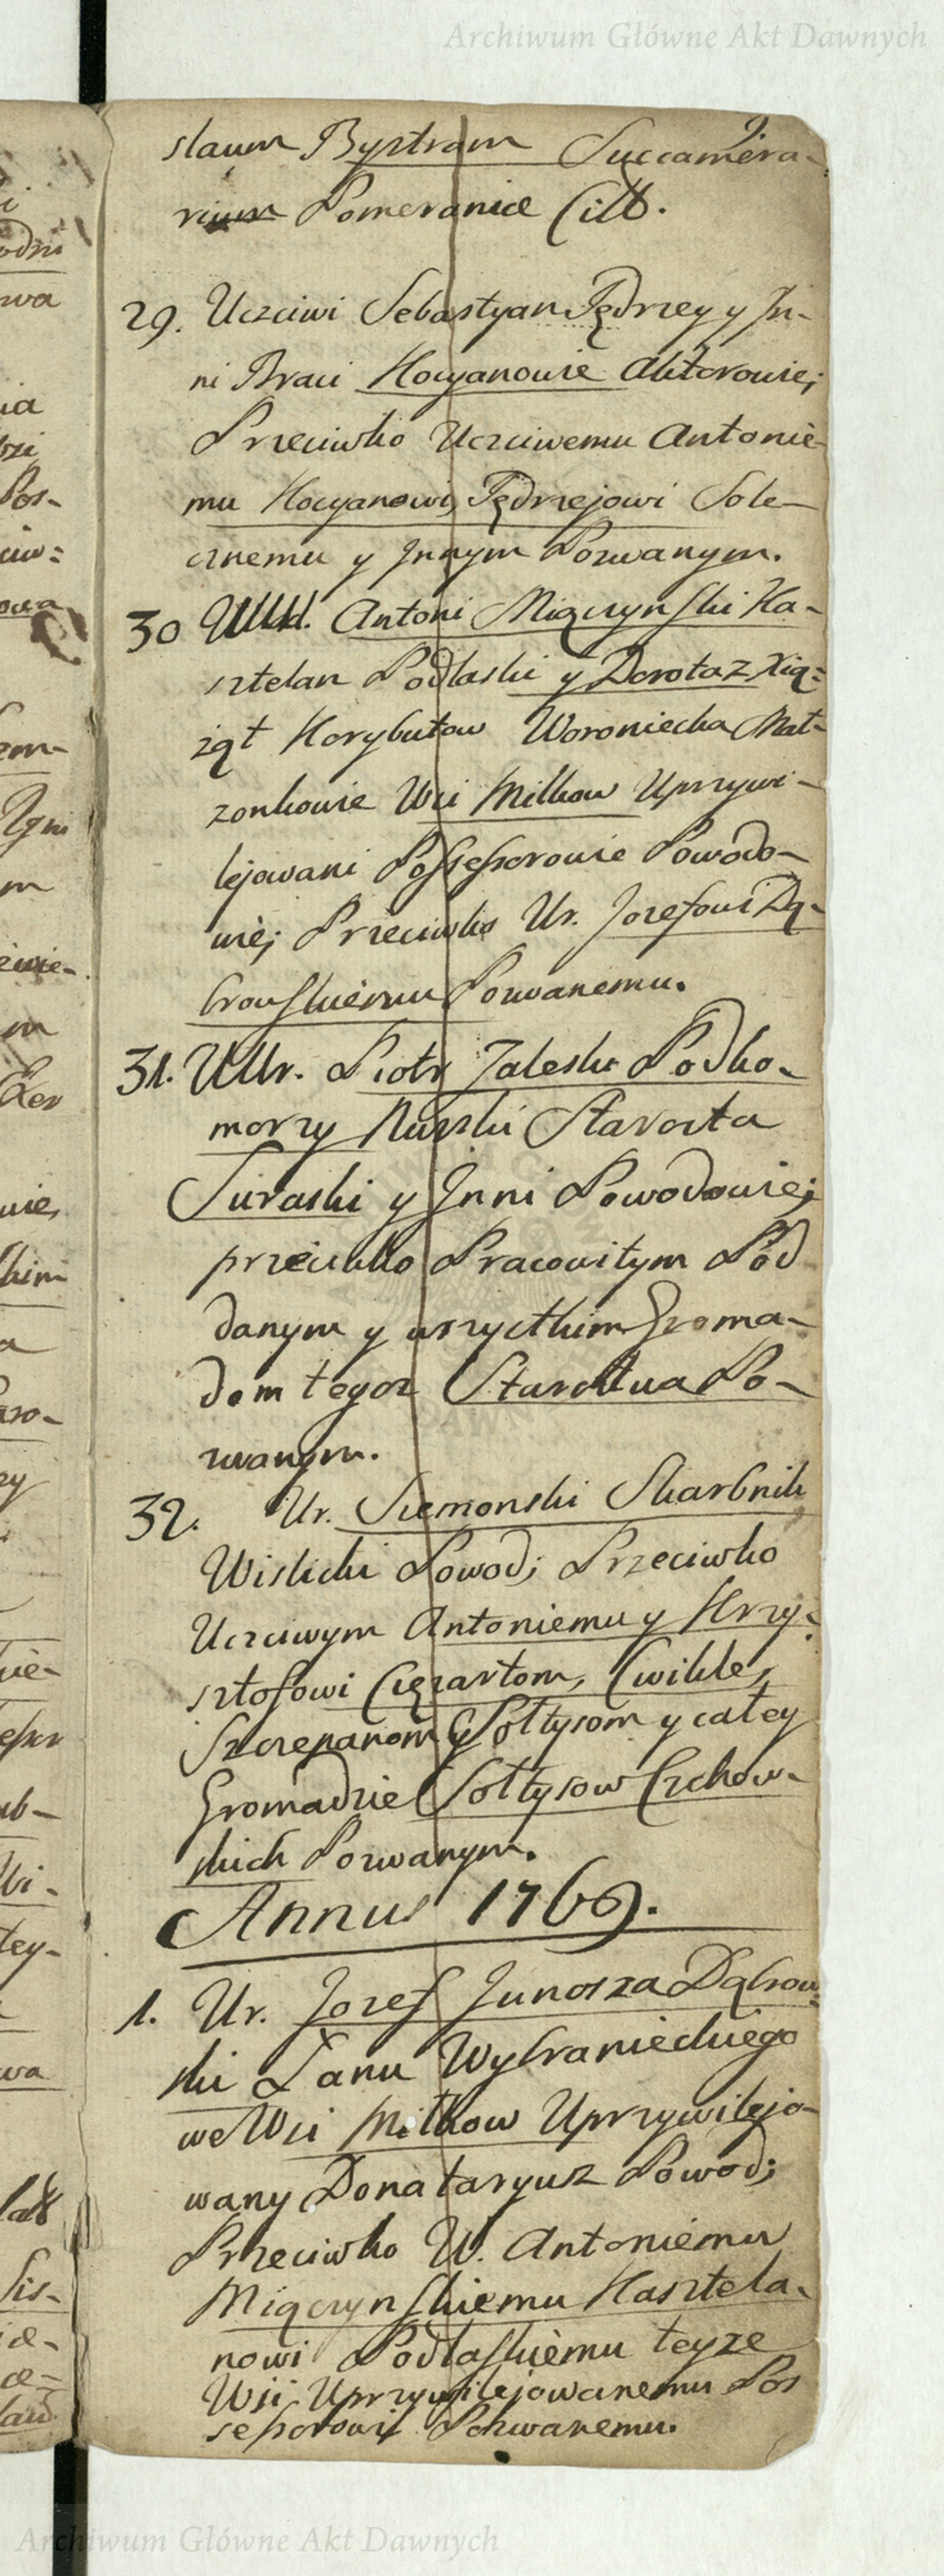 Archiwum Główne Akt Dawnych
slaum Bystram Succamera-
rium Pomeraniæ Citt.
29. Uczciwi Sebastyan Jędrzey y In-
ni Braci Kocyanowie Aktorowie;
Przeciwko Uczciwemu Antonie-
mu Kocyanowi, Jędrzejowi Sole-
cznemu y Innym Pozwanym.
30 Antoni Miączynski Ka-
sztelan Podlaski y Dorota z Xią-
żąt Korybutow Woroniecka Mał-
zonkowie Wsi Milkow Uprzywi-
lejowani Possessorowie Powodo-
wie; Przeciwko Ur. Jozefowi Dą-
browskiemu Pozwanemu.
31. WUr. Piotr Zaleski Podko-
morzy Nurski Starosta
Suraski y Inni Powodowie;
przeciwko Pracowitym Pod
danym y wszystkim Groma-
dom tegoz Starostwa Po-
zwanym.
32. Ur. Siemonski Skarbnik
Wislicki Powod; Przeciwko
Uczciwym Antoniemu y Krzy-
sztofowi Cięzartom, Cwikle,
Szczepanom y Sołtysom y całey
Gromadzie Sołtysow Czchow-
skich Pozwanym.
Annus 1769.
1. Ur. Jozef Junosza Dąbrow-
ski Łanu Wybranieckiego
we Wsi Milkow Uprzywilejo-
wany Donataryusz Powod;
Przeciwko W. Antoniemu
Miączynskiemu Kasztela-
nowi Podlaskiemu teyze
Wsi Uprzywilejowanemu Pos
sessorowi Pozwanemu.
Archiwum Główne Akt Dawnych